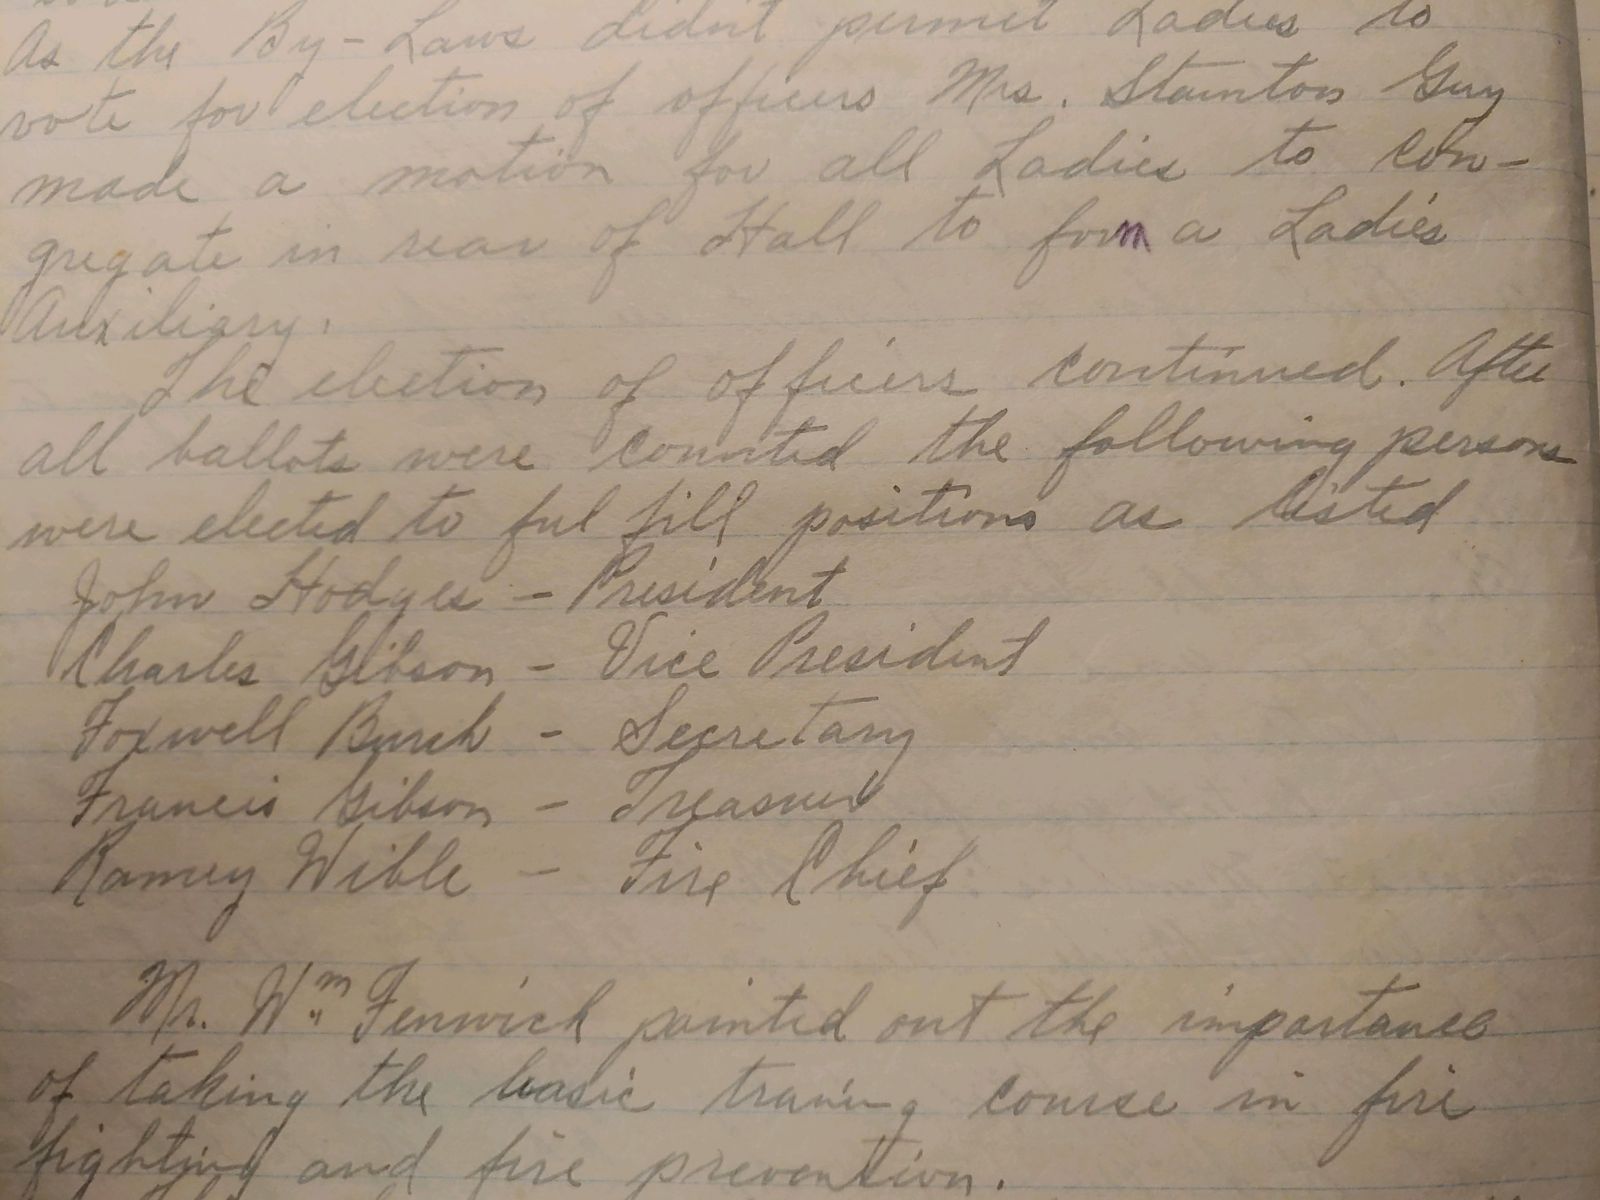 As the By-Laws didn't permit Ladies to
vote for election of officers Mrs. Stainton Guy
made a motion for all Ladies to con-
gregate in rear of Hall to form a Ladies
Auxiliary.
The election of officers continued. After
all ballots were counted the following persons
were elected to ful fill positions as listed
John Hodges - President
Charles Gibson - Vice President
Foxwell Burch - Secretary
Francis Gibson - Treasurer
Ramey Wible - Fire Chief
Mr. Wm Fenwick pointed out the importance
of taking the basic training course in fire
fighting and fire prevention.